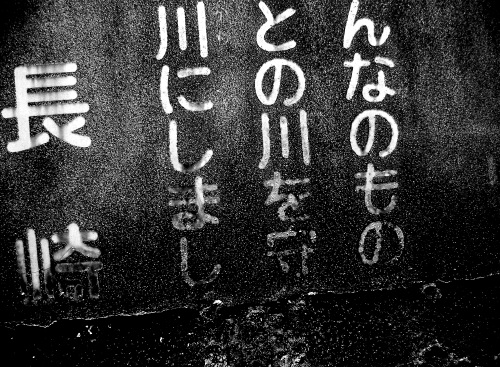 んなのもの
との川を守
川にしまし
長崎